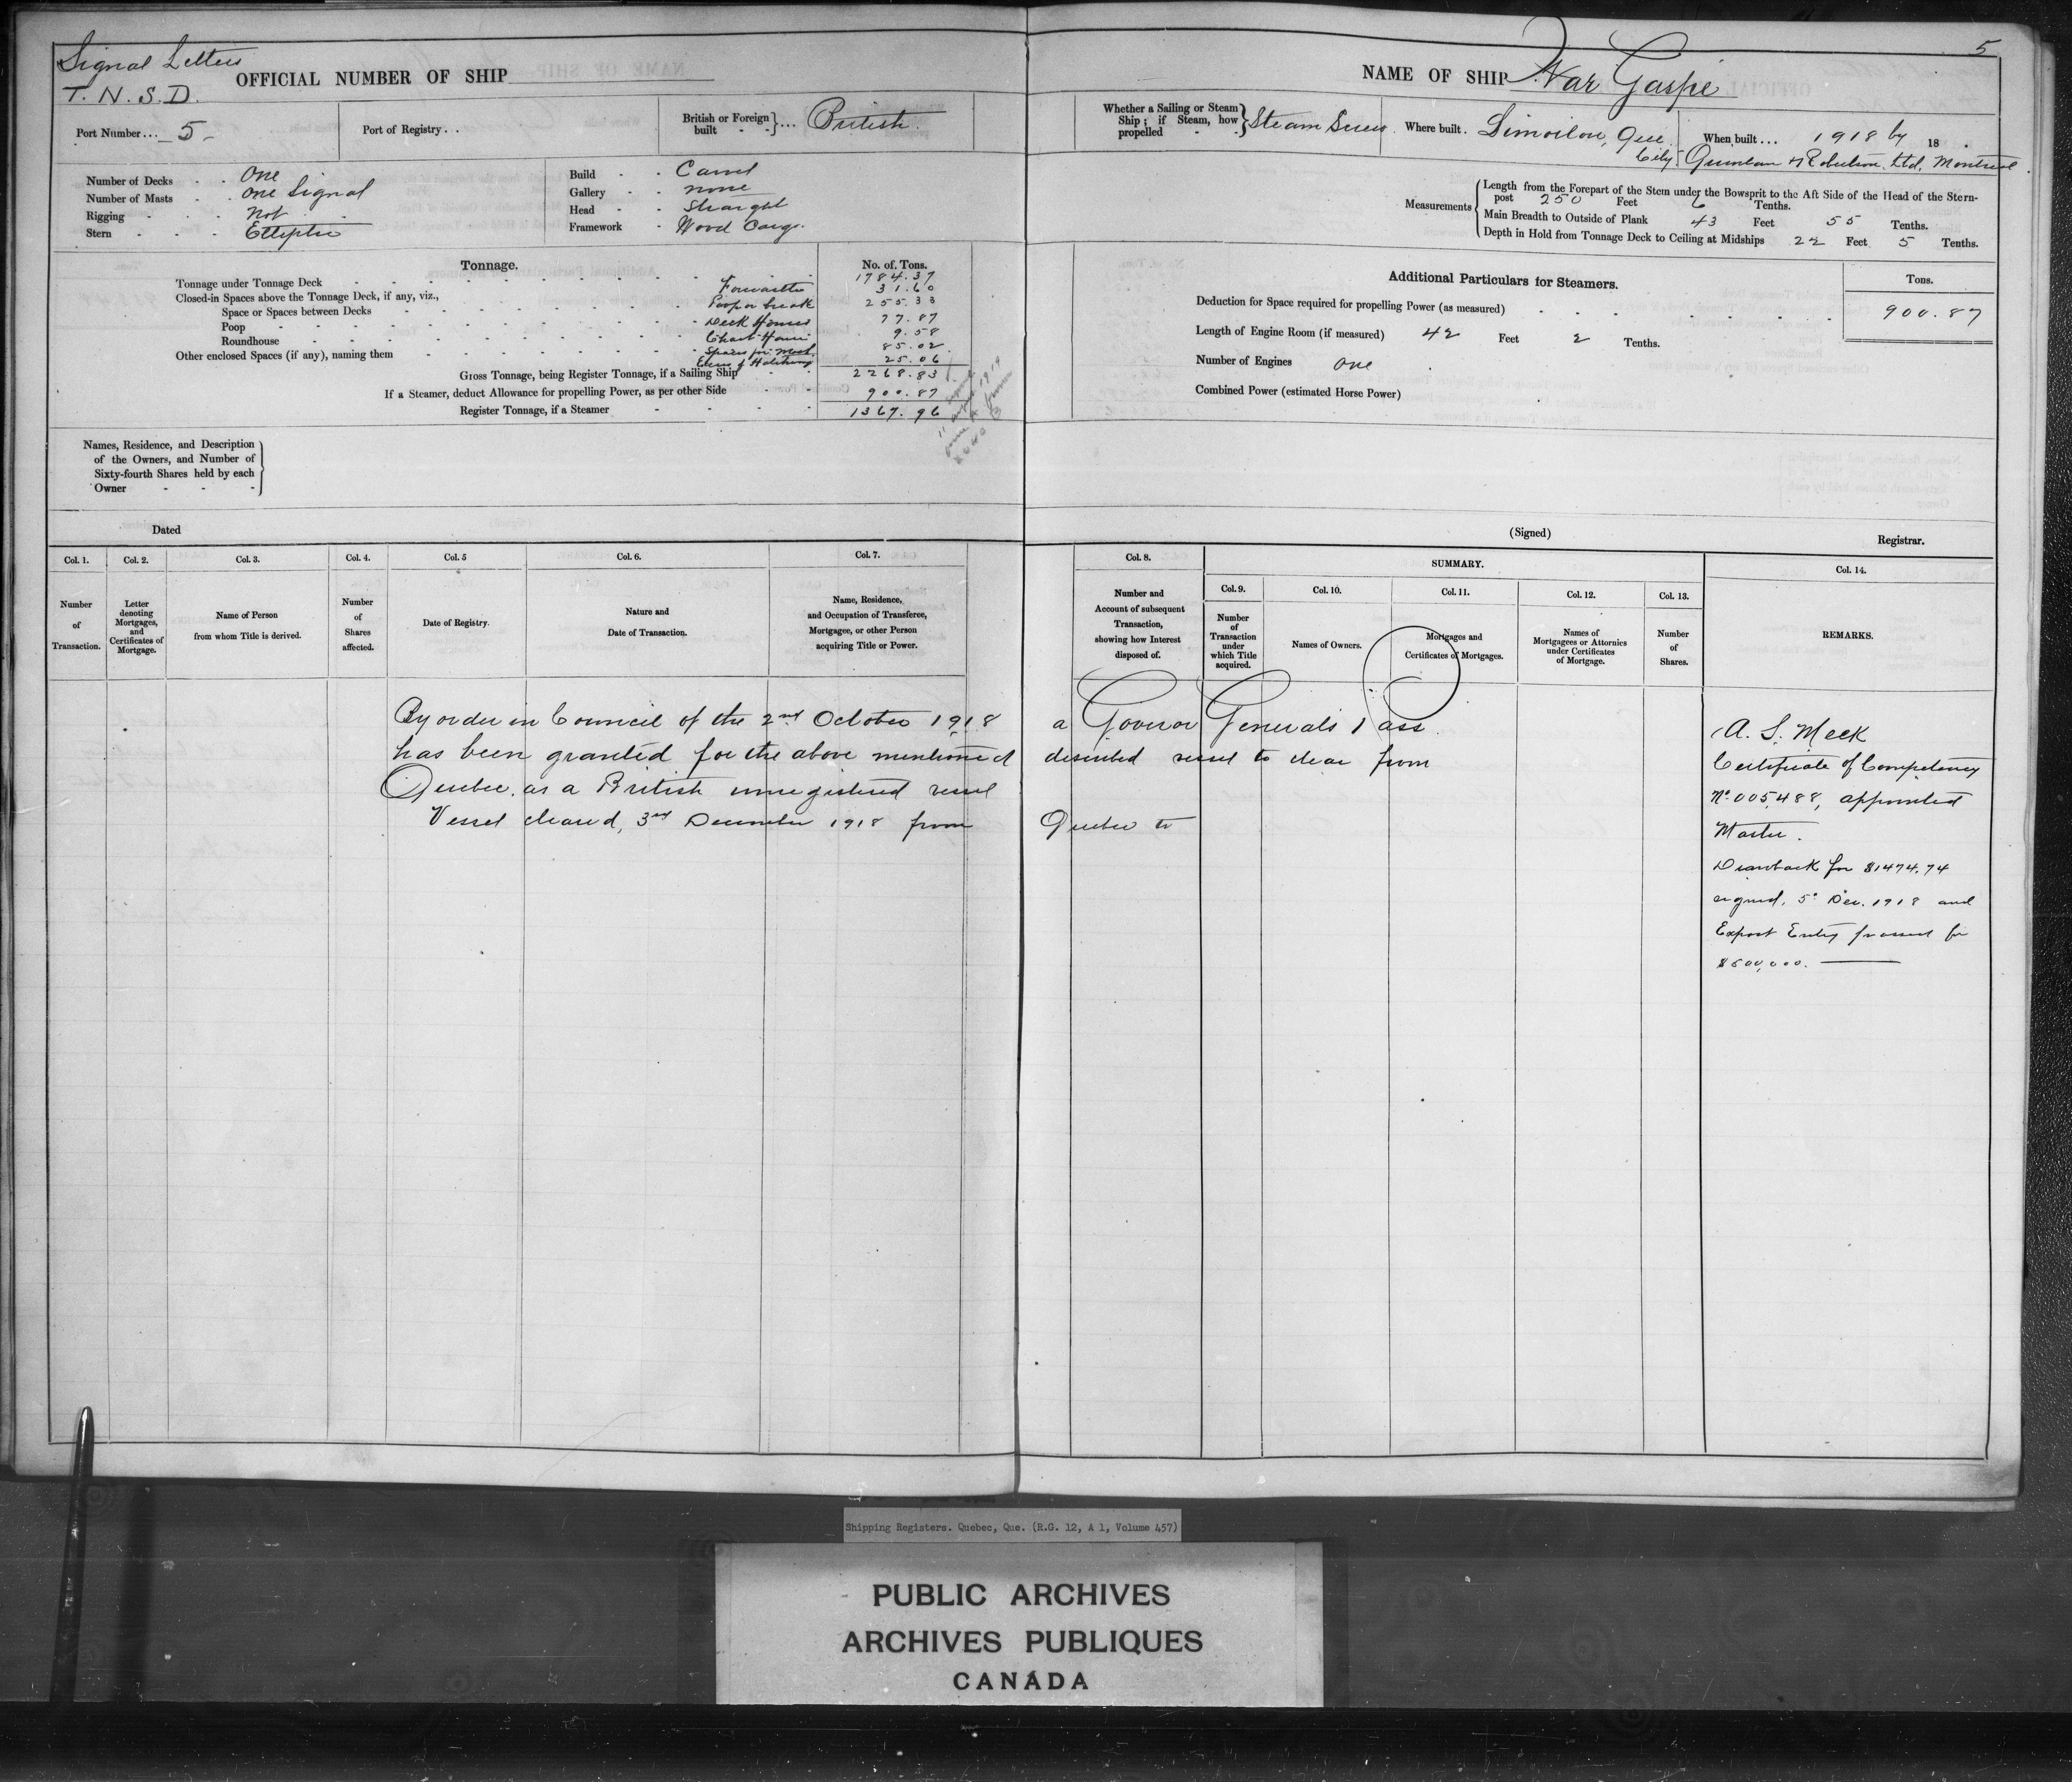 Signal Letters
T. N. S. D.
OFFICIAL NUMBER OF SHIP
Port Number... 5-
Port of Registry . .
British or Foreign built - - } ... British.
Number of Decks - - One
Number of Masts - - One Signal
Rigging - - - Not
Stern - - - Elliptic
Build - - Carvel
Gallery - - none
Head - - Straight
Framework - Wood Cargo
Tonnage.
No. of. Tons.
Tonnage under Tonnage Deck 1784.37
Closed-in Spaces above the Tonnage Deck, if any, viz., Forecastle 31.60
Space or Spaces between Decks Poop or break 255.33
Poop Deck Houses 77.87
Roundhouse Chart House 9.58
Other enclosed Spaces (if any), naming them Spaces for Mach. 85.02
Excess of Hatchways 25.06
Gross Tonnage, being Register Tonnage, if a Sailing Ship 2268.83
If a Steamer, deduct Allowance for propelling Power, as per other Side 900.87
Register Tonnage, if a Steamer 1367.96
Names, Residence, and Description
of the Owners, and Number of
Sixty-fourth Shares held by each
Owner - - -
Dated
Col. 1. Col. 2. Col. 3. Col. 4. Col. 5 Col. 6. Col. 7.
Number of Transaction.
Letter denoting Mortgages, and Certificates of Mortgage.
Name of Person from whom Title is derived.
Number of Shares affected.
Date of Registry.
Nature and Date of Transaction.
Name, Residence, and Occupation of Transferee, Mortgagee, or other Person acquiring Title or Power.
By order in Council of the 2nd October 1918
has been granted for the above mentioned
Quebec. as a British unregistered vessel
Vessel cleared, 3rd December 1918 from
5
NAME OF SHIP War Gaspé
Whether a Sailing or Steam Ship; if Steam, how propelled - - } Steam Screw
Where built . Limoilou, Que. City.
When built ... 1918 by 18 .
Quinlan & Robertson Ltd, Montreal.
Measurements
Length from the Forepart of the Stem under the Bowsprit to the Aft Side of the Head of the Stern-
post 250 Feet 6 Tenths.
Main Breadth to Outside of Plank 43 Feet 55 Tenths.
Depth in Hold from Tonnage Deck to Ceiling at Midships 22 Feet 5 Tenths.
Additional Particulars for Steamers.
Tons.
Deduction for Space required for propelling Power (as measured) 900.87
Length of Engine Room (if measured) 42 Feet 2 Tenths.
Number of Engines One
Combined Power (estimated Horse Power)
(Signed)
Registrar.
Col. 8. SUMMARY. Col. 14.
Col. 9. Col. 10. Col. 11. Col. 12. Col. 13.
Number and Account of subsequent Transaction, showing how Interest disposed of.
Number of Transaction under which Title acquired.
Names of Owners.
Mortgages and Certificates of Mortgages.
Names of Mortgagees or Attornies under Certificates of Mortgage.
Number of Shares.
REMARKS.
a Govenor Generals Pass
described vessel to clear from
Quebec to
A. S. Meek
Certificate of Competency
No. 005,488, appointed
Master.
Drawback for $1474.74
signed, 5" Dec. 1918 and
Export Entry passed for
$500,000.
Shipping Registers. Quebec, Que. (R.G. 12, A 1, Volume 457)
PUBLIC ARCHIVES
ARCHIVES PUBLIQUES
CANADA